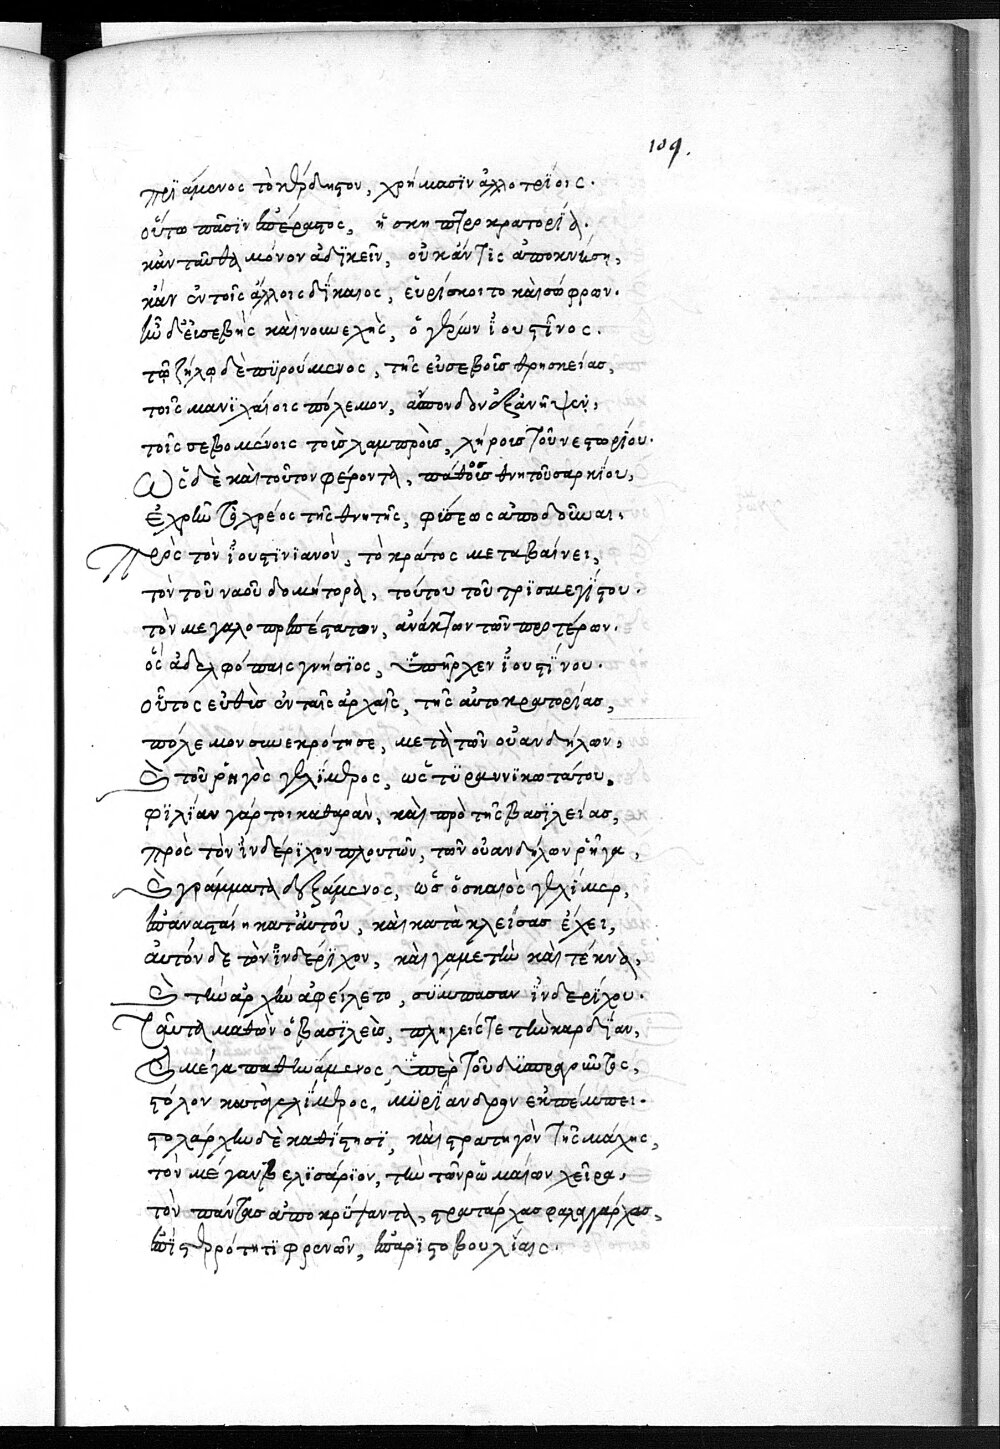 109.
πρϊάμενος τὸ κέρδιστον, χρήμασϊν ἀλλοτρϊοις.
οὕτω πᾶσϊν ἐπέρατος, ἡ σκηπτροκρατορϊα.
κἀνταῦθα μόνον ἀδϊκεῖν, οὐκ ἄν τϊς ἀποκνήση,
κἂν ἐν τοῖς ἄλλοις δϊκαιος, εὑρίσκοιτο καὶ σώφρων.
ἦν δ' εὐσεβὴς καὶ νουνεχὴς, ὁ γέρων ϊουστῖνος.
τῷ ζήλῳ δὲ πϋρούμενος, τῆς εὐσεβοῦς θρησκείας,
τοῖς μανϊχαίοις πόλεμον, ἄσπονδον ἐξανῆψεν,
τοῖς σεβομένοις τοὺς λαμπροὺς, λήρους τοῦ νεστορίου.
Ὡς δὲ καὶ τοῦτον φέροντα, πάθος θνητοῦ σαρκίου,
ἐχρῆν τὸ χρέος τῆς θνητῆς, φϋσεως ἀποδοῦναι.
Πρὸς τὸν ϊουστϊνϊανὸν, τὸ κράτος μεταβαίνει,
τὸν τοῦ ναοῦ δομήτορα, τούτου τοῦ τρϊσμεγϊστου.
τὸν μεγαλοπρεπέστατον, ἀνάκτων τῶν προτέρων.
ὃς ἀδελφόπαις γνήσϊος, ὑπῆρχεν ϊουστϊνου.
οὗτος εὐθὺς ἐν ταῖς ἀρχαῖς, τῆς αὐτοκρατορίας,
πόλεμον συνεκρότησε, μετὰ τῶν οὐανδήλων,
καὶ τοῦ ῥηγὸς γελίμερος, ὡς τϋραννϊκωτάτου.
φϊλϊαν γάρ τοι καθαρὰν, καὶ πρὸ τῆς βασϊλείας,
πρὸς τὸν ἰνδέρϊχον πλουτῶν, τῶν οὐανδήλων ῥῆγα,
καὶ γράμματα δεξάμενος, ὡς ὁ σκαιὸς γελίμερ,
ἐπαναστάϊη κατ' αὐτοῦ, καὶ κατακλείσας ἔχει,
αὐτόν δε τὸν ἰνδέρϊχον, καὶ γαμετὴν καὶ τέκνα,
καὶ τὴν ἀρχὴν ἀφείλετο, σύμπασαν ἰνδερϊχου.
Ταῦτα μαθὼν ὁ βασϊλεὺς, πληγείς τε τὴν καρδϊαν,
καὶ μέγα παθηνάμενος, ὑπὲρ τοῦ δϋσπραγοῦντος,
στόλον κατὰ γελίμερος, μϋρϊανδρον ἐκπέμπει.
στολάρχην δὲ καθϊστησϊ, καὶ στρατηγὸν τῆς μάχης,
τὸν μέγαν βελϊσάριον, τὴν τῶν ῥωμαίων χεῖρα,
τὸν πάντας ἀποκρύψαντα, στρατάρχας φαλαγγάρχας,
ἐπϊ στερρότητϊ φρενῶν, ἐπ' ἀρϊστοβουλίαις.